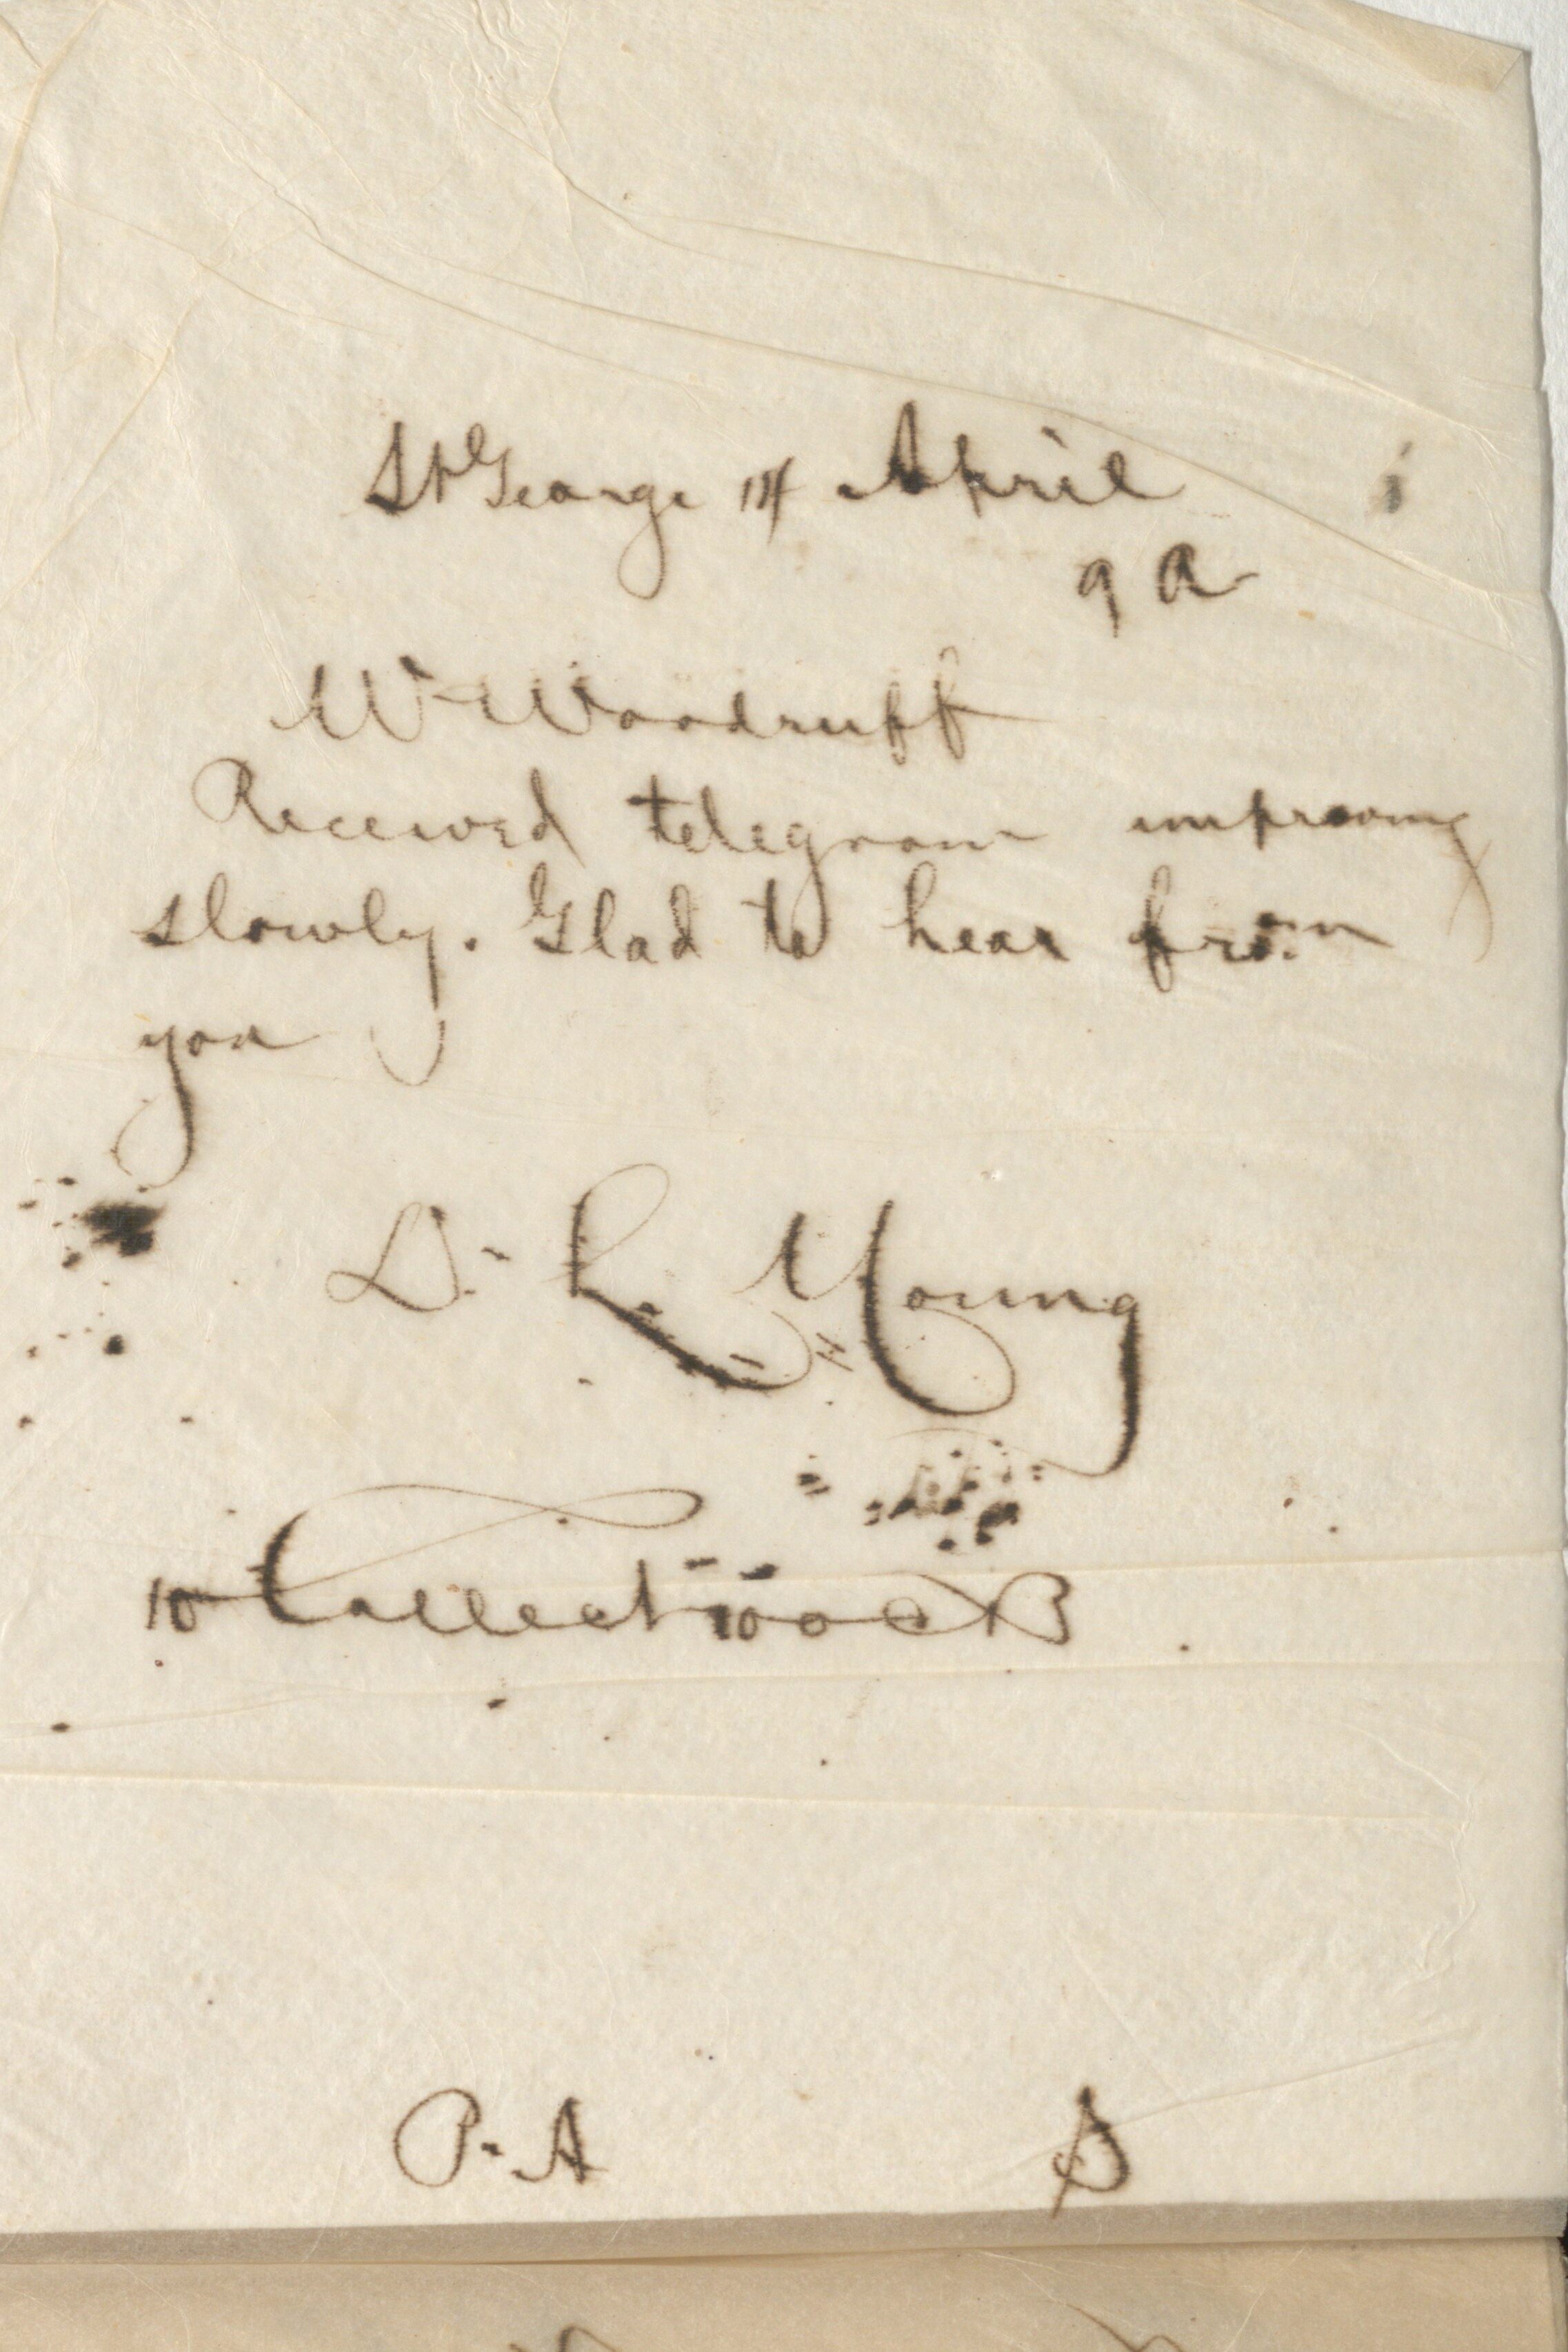 St George 14 April
9 A
W Woodruff
Received telegram improving
slowly. Glad to hear from
you
L. Young
10 Collect 100 B
P. A S